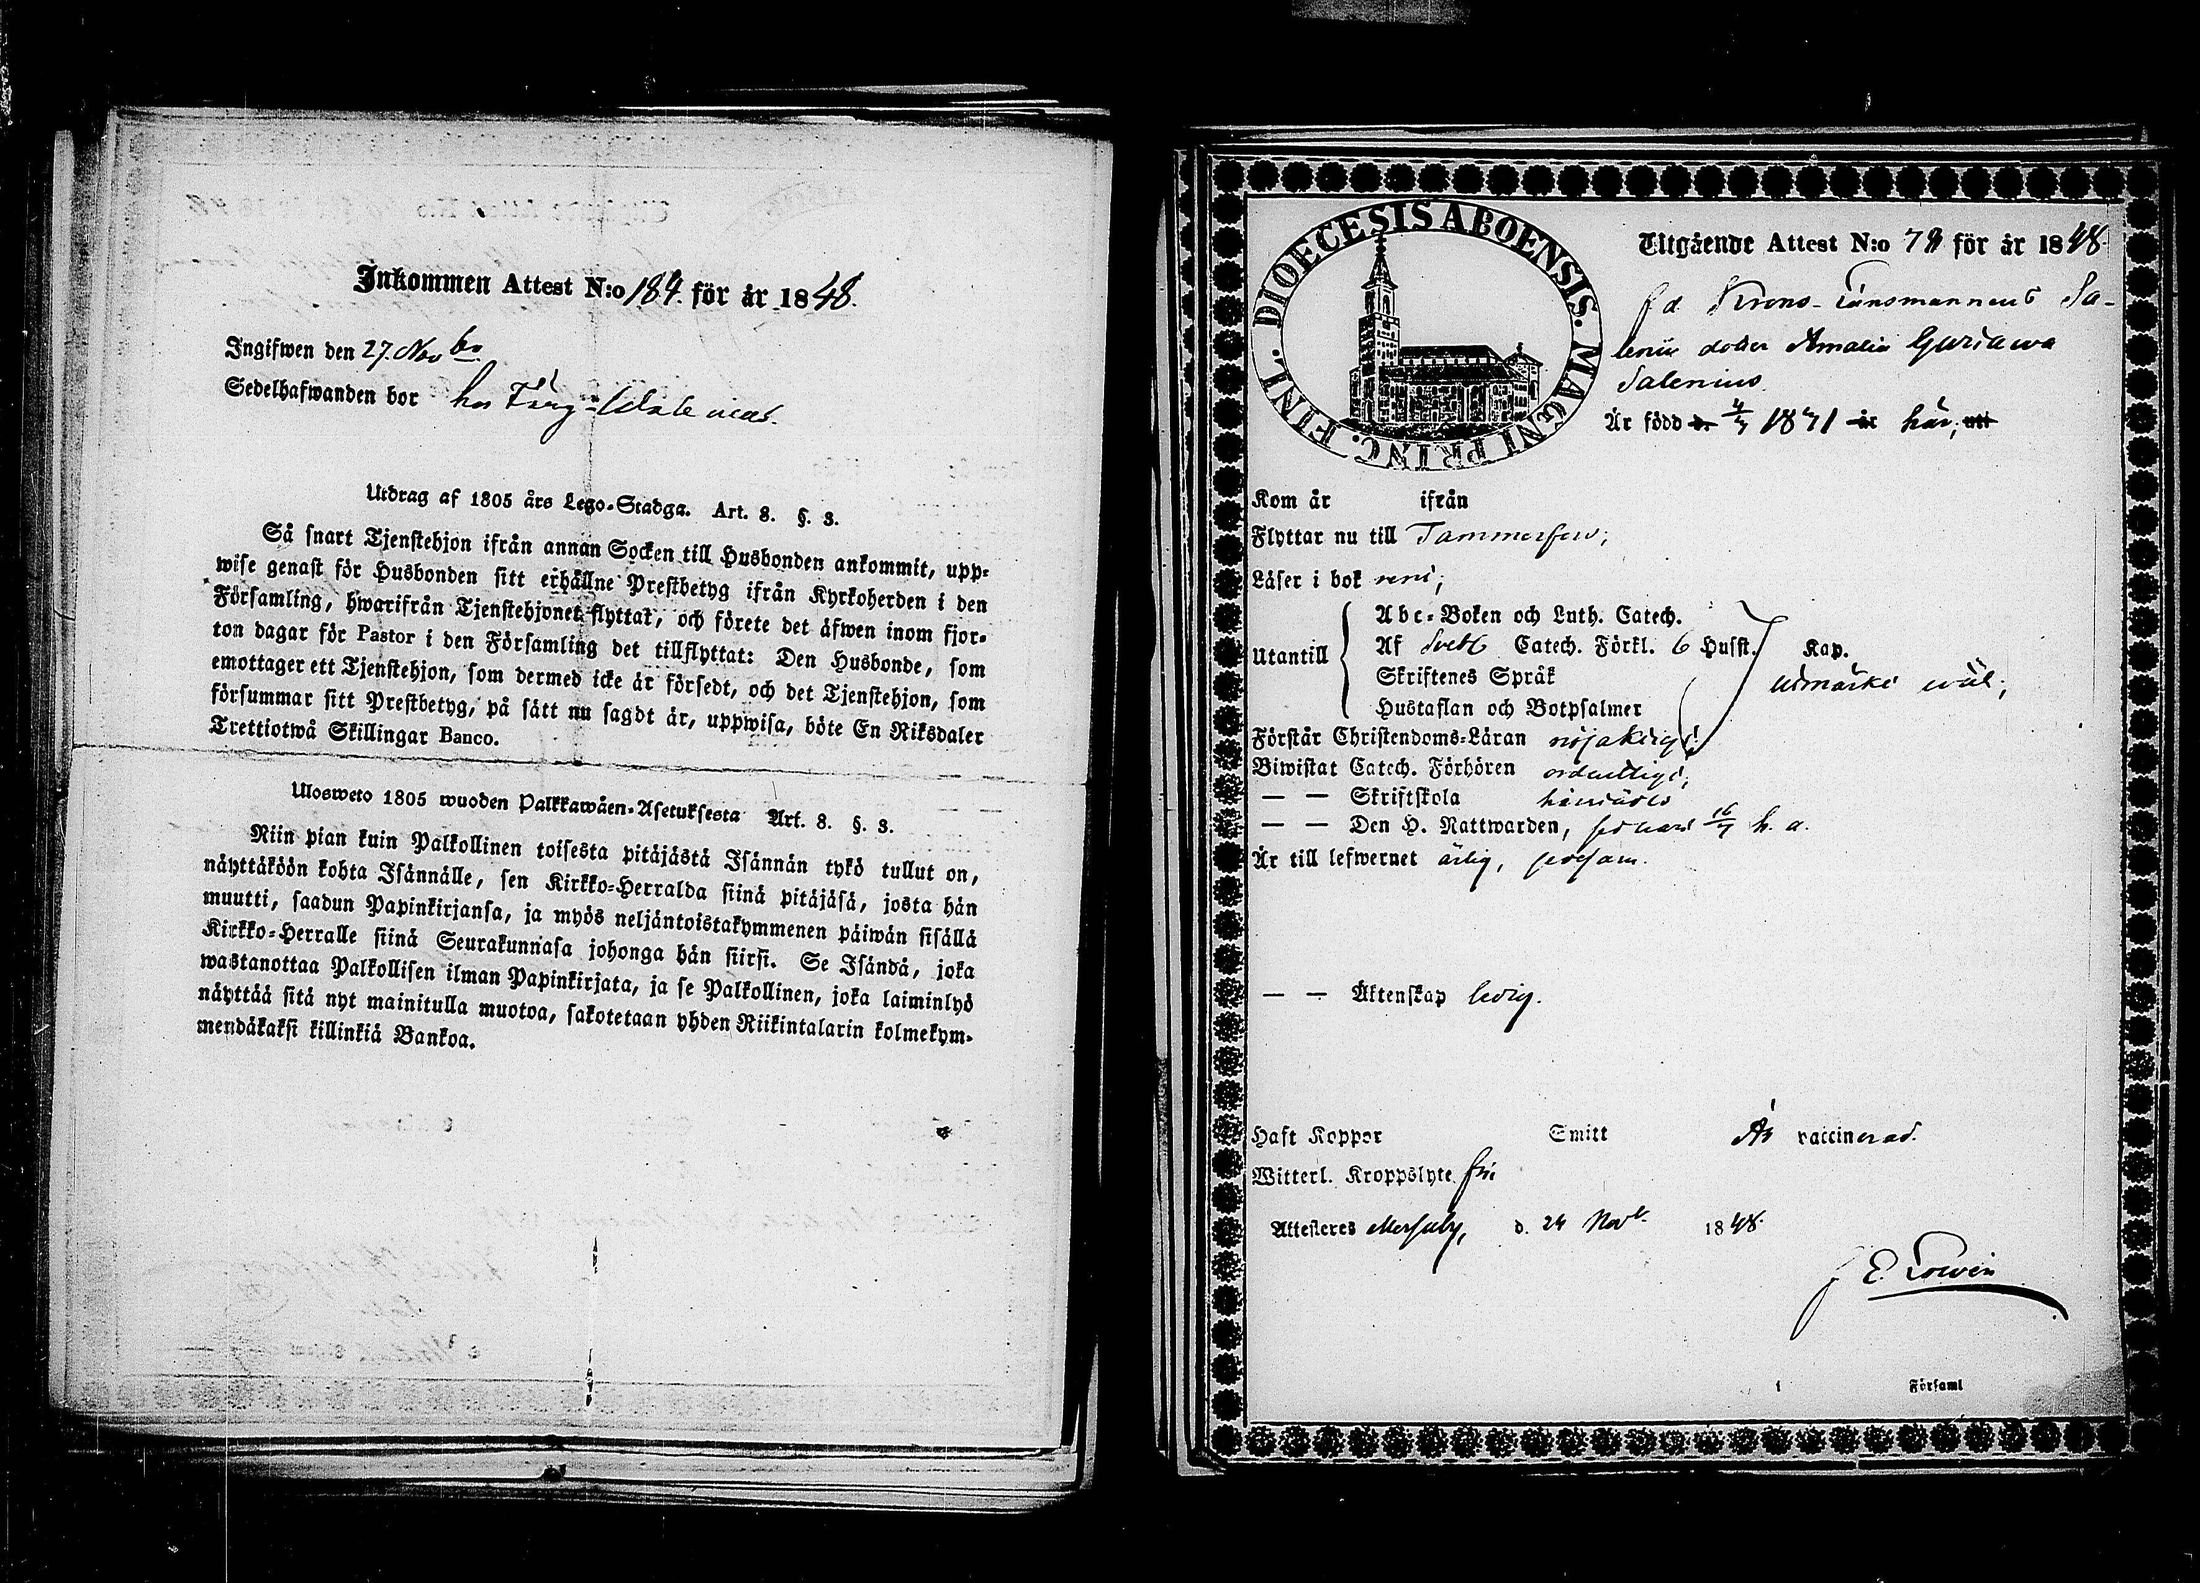 Inkommen Attest N:o 184. för år 1848.
Ingifwen den 27. Novbr
Sedelhafwanden bor hos Färg
Utdrag af 1805 års Lego-Stadga. Art. 8. §. 3.
Så snart Tjenstehjon ifrån annan Socken till Husbonden ankommit, upp-
wise genast för Husbonden sitt erhållne Prestbetyg ifrån Kyrkoherden i den
Församling, hwarifrån Tjenstehjonet flyttat, och förete det äfwen inom fjor-
ton dagar för Pastor i den Församling det tillflyttat: Den Husbonde, som
emottager ett Tjenstehjon, som dermed icke är försedt, och det Tjenstehjon, som
försummar sitt Prestbetyg, på sätt nu sagdt är, uppwisa, böte En Riksdaler
Trettiotwå Skillingar Banco.
Ulosweto 1805 wuoden Palkkawäen-Asetuksesta Art. 8. §. 3.
Niin pian kuin Palkollinen toisesta pitäjästä Isännän tykö tullut on,
näyttäköön kohta Isännälle, sen Kirkko-Herralda siinä pitäjäsä, josta hän
muutti, saadun Papinkirjansa, ja myös neljäntoistakymmenen päiwän sisällä
Kirkko-Herralle siinä Seurakunnasa johonga hän siirsi. Se Isändä, joka
wastanottaa Palkollisen ilman Papinkirjata, ja se Palkollinen, joka laiminlyö
näyttää sitä nyt mainitulla muotoa, sakotetaan yhden Riikintalarin kolmekym-
mendäkaksi killinkiä Bankoa.
DIOECESIS ABOENSIS. MAGNI PRINC. FINL.
Utgående Attest N:o 78 för år 1848.
f d Krono-Länsmannens Sa-
lenii dotter Amalia Gustawa
Salenius.
Är född d. 4/7 1831 år här, uti
Kom år ifrån
Flyttar nu till Tammerfors;
Läser i bok rent;
Utantill
Abc-Boken och Luth. Catech.
Af Sveb. Catech. Förkl. 6 Husst. Kap.
Skriftenes Språk utmärkt wäl;
Hustaflan och Botpsalmer
Förstår Christendoms-Läran nöjaktigt;
Biwistat Catech. Förhören ordentligt;
— — Skriftskola härstädes
— — Den H. Nattwarden, sednast 16/7 h. a.
Är till lefwernet ärlig,
— — Äktenskap ledig.
Haft Koppor Smitt Är vaccinerad.
Witterl. Kroppslyte fri
Attesteres d. 24 Novb. 1848.
E. Lowén
i Församl